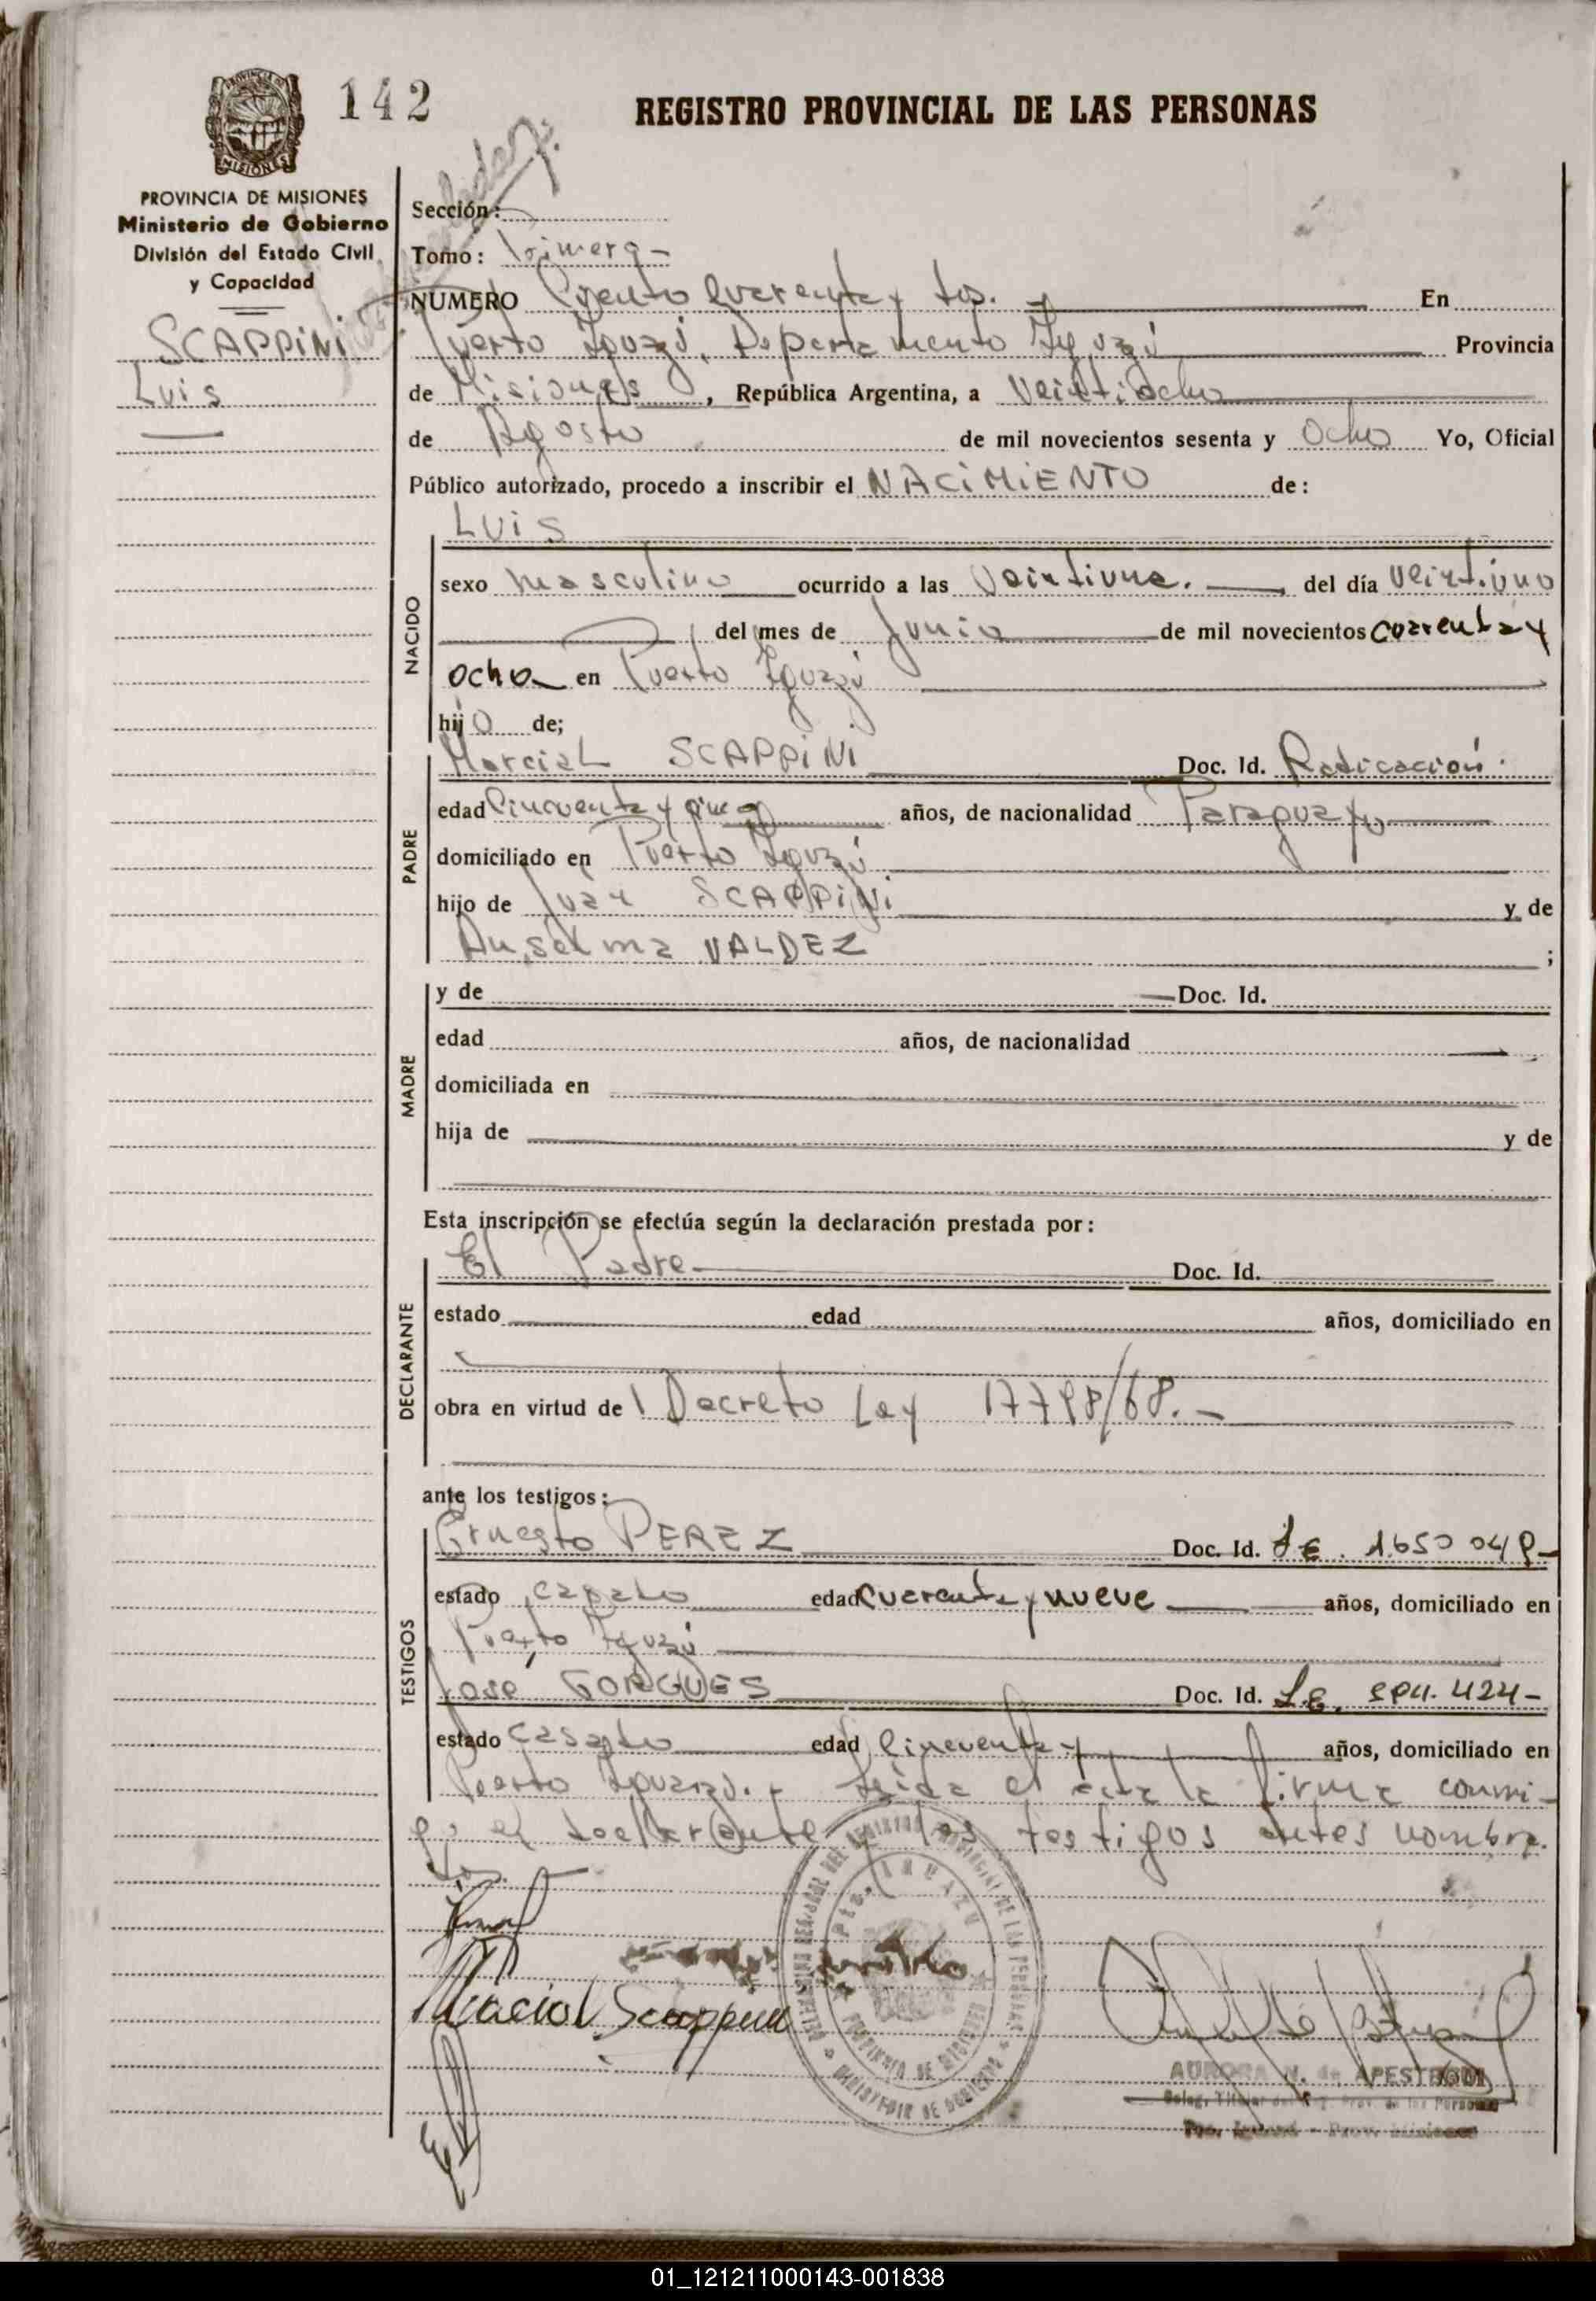 142
REGISTRO PROVINCIAL DE LAS PERSONAS
MISIONES
PROVINCIA DE MISIONES
Ministerio de Gobierno
División del Estado Civil
y Capacidad
SCAPPiNi
Luis
Sección:
Tomo: Primero -
NUMERO Ciento Cuarenta y dos. En
Puerto Iguazú, Departamento Iguazú Provincia
de Misiones, República Argentina, a Veintiocho
de Agosto de mil novecientos sesenta y Ocho Yo, Oficial
Público autorizado, procedo a inscribir el NACiMiENTO de:
LUiS
NACIDO
sexo masculino ocurrido a las Veintiuna. del día Veintiuno
del mes de Junio de mil novecientos cuarenta y
ocho en Puerto Iguazú
hijo de;
PADRE
Marcial SCAPPiNi Doc. Id. Radicación.
edad Cincuenta y años, de nacionalidad Paraguayo
domiciliado en Puerto Iguazú
hijo de Juan SCAPPiNi y de
Anselma VALDEZ ;
MADRE
y de Doc. Id.
edad años, de nacionalidad
domiciliada en
hija de y de
Esta inscripción se efectúa según la declaración prestada por:
DECLARANTE
El Padre Doc. Id.
estado edad años, domiciliado en
obra en virtud de Decreto Ley 17798/68.-
ante los testigos:
TESTIGOS
Ernesto PEREZ Doc. Id. L.E.
estado casado edad cuarenta y nueve años, domiciliado en
Puerto Iguazú
José GORGUES Doc. Id. L.E.
estado casado edad Cincuenta y años, domiciliado en
Puerto Iguazú.- Leida el acta la firma conmi-
go el declarante y los testigos antes nombra-
dos.
Marcial Scappini
AURORA N. de APESTEGUI
01_121211000143-001838